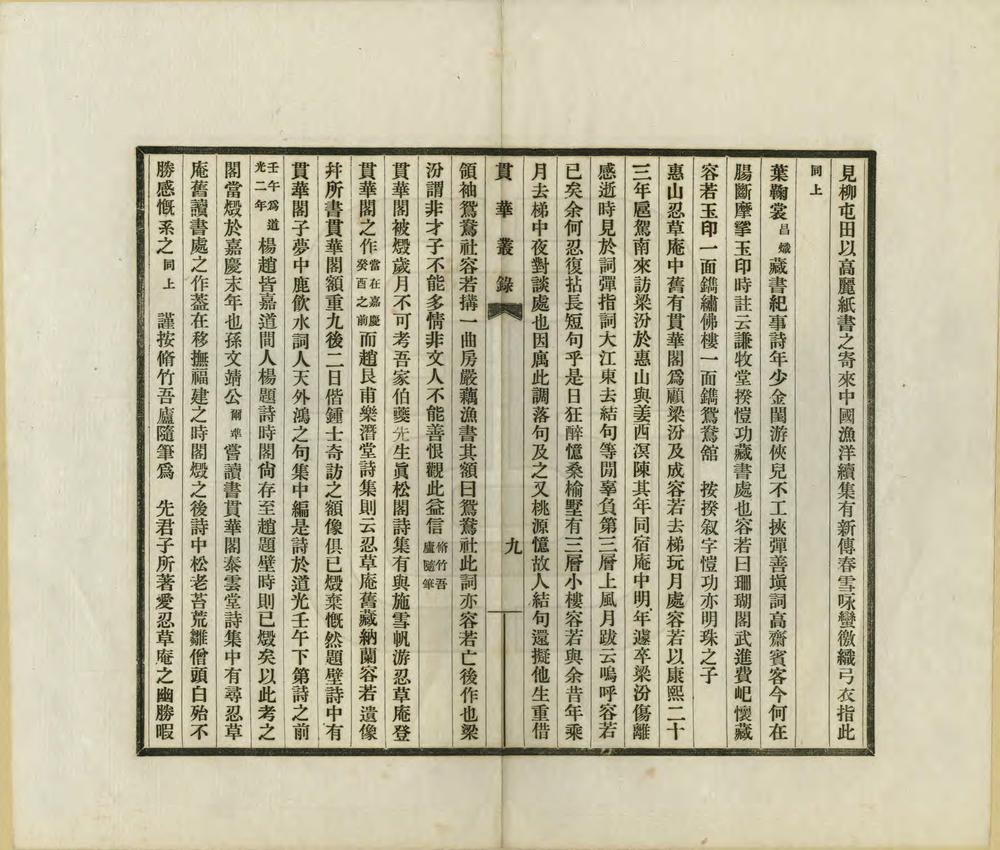 見柳屯田以高麗紙書之寄來中國漁洋續集有新傳春雪咏蠻徼織弓衣指此
同上
葉鞠裳昌熾藏書紀事詩年少金閨游俠兒不工挾彈善塡詞高齋賓客今何在
腸斷摩挲玉印時註云謙牧堂揆愷功藏書處也容若曰珊瑚閣武進費屺懷藏
容若玉印一面鐫繡佛樓一面鐫鴛鴦舘　按揆叙字愷功亦明珠之子
惠山忍草庵中舊有貫華閣爲顧梁汾及成容若去梯玩月處容若以康熙二十
三年扈駕南來訪梁汾於惠山與姜西溟陳其年同宿庵中明年遽卒梁汾傷離
感逝時見於詞彈指詞大江東去結句等閒辜負第三層上風月跋云嗚呼容若
已矣余何忍復拈長短句乎是日狂醉憶桑榆墅有三層小樓容若與余昔年乘
月去梯中夜對談處也因寓此調落句及之又桃源憶故人結句還擬他生重借
貫華叢錄
九
領袖鴛鴦社容若搆一曲房嚴藕漁書其額曰鴛鴦社此詞亦容若亡後作也梁
汾謂非才子不能多情非文人不能善恨觀此益信脩竹吾廬隨筆
貫華閣被燬歲月不可考吾家伯夔先生眞松閣詩集有與施雪帆游忍草庵登
貫華閣之作當在嘉慶癸酉之前而趙艮甫樂潛堂詩集則云忍草庵舊藏納蘭容若遺像
幷所書貫華閣額重九後二日偕鍾士奇訪之額像俱已燬棄慨然題壁詩中有
貫華閣子夢中鹿飲水詞人天外鴻之句集中編是詩於道光壬午下第詩之前
壬午爲道光二年楊趙皆嘉道間人楊題詩時閣尙存至趙題壁時則已燬矣以此考之
閣當燬於嘉慶末年也孫文靖公爾準嘗讀書貫華閣泰雲堂詩集中有尋忍草
庵舊讀書處之作葢在移撫福建之時閣燬之後詩中松老苔荒雛僧頭白殆不
勝感慨系之同上　謹按脩竹吾廬隨筆爲　先君子所著愛忍草庵之幽勝暇